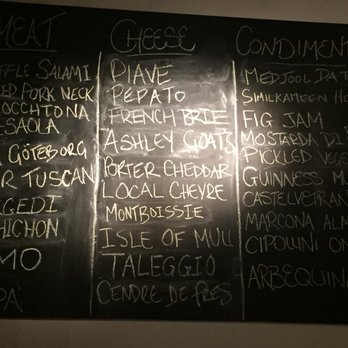 MEAT
FFLE SALAMI
ED PORK NECK
OCCHIONA
ESAOLA
A GÖTEBORG
R TUSCAN
EGEDI
HICHON
MO
PA
CHEESE
PIAVE
PEPATO
FRENCH BRIE
ASHLEY GOATS
PORTER CHEDDAR
LOCAL CHEVRE
MONTBOISSIE
ISLE OF MULL
TALEGGIO
CENDRE DE PRES
CONDIMENT
MEDJOOL DAT
SIMILKAMEEN HO
FIG JAM
MOSTARDA DI
PICKLED VEGE
GUINNESS M
CASTELVETRAN
MARCONA ALM
CIPOLLINI ON
ARBEQUINA